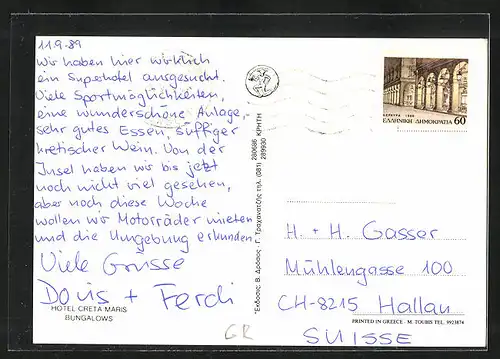 11.9.89
Wir haben hier wirklich
ein Superhotel ausgesucht.
Viele Sportmöglichkeiten,
eine wunderschöne Anlage,
sehr gutes Essen, süffiger
kretischer Wein. Von der
Insel haben wir bis jetzt
noch nicht viel gesehen,
aber noch diese Woche
wollen wir Motorräder mieten
und die Umgebung erkunden.
Viele Grüsse
Doris + Ferdi
HOTEL CRETA MARIS
BUNGALOWS
GR
Έκδοσις: Β. Δρόσος - Γ. Τραχανατζής τηλ. (081) 280686 289930 ΚΡΗΤΗ
ΚΕΡΚΥΡΑ 1988
ΕΛΛΗΝΙΚΗ ΔΗΜΟΚΡΑΤΙΑ 60
H. + H. Gasser
Mühlengasse 100
CH-8215 Hallau
PRINTED IN GREECE - M. TOUBIS TEL. 9923874
SUISSE